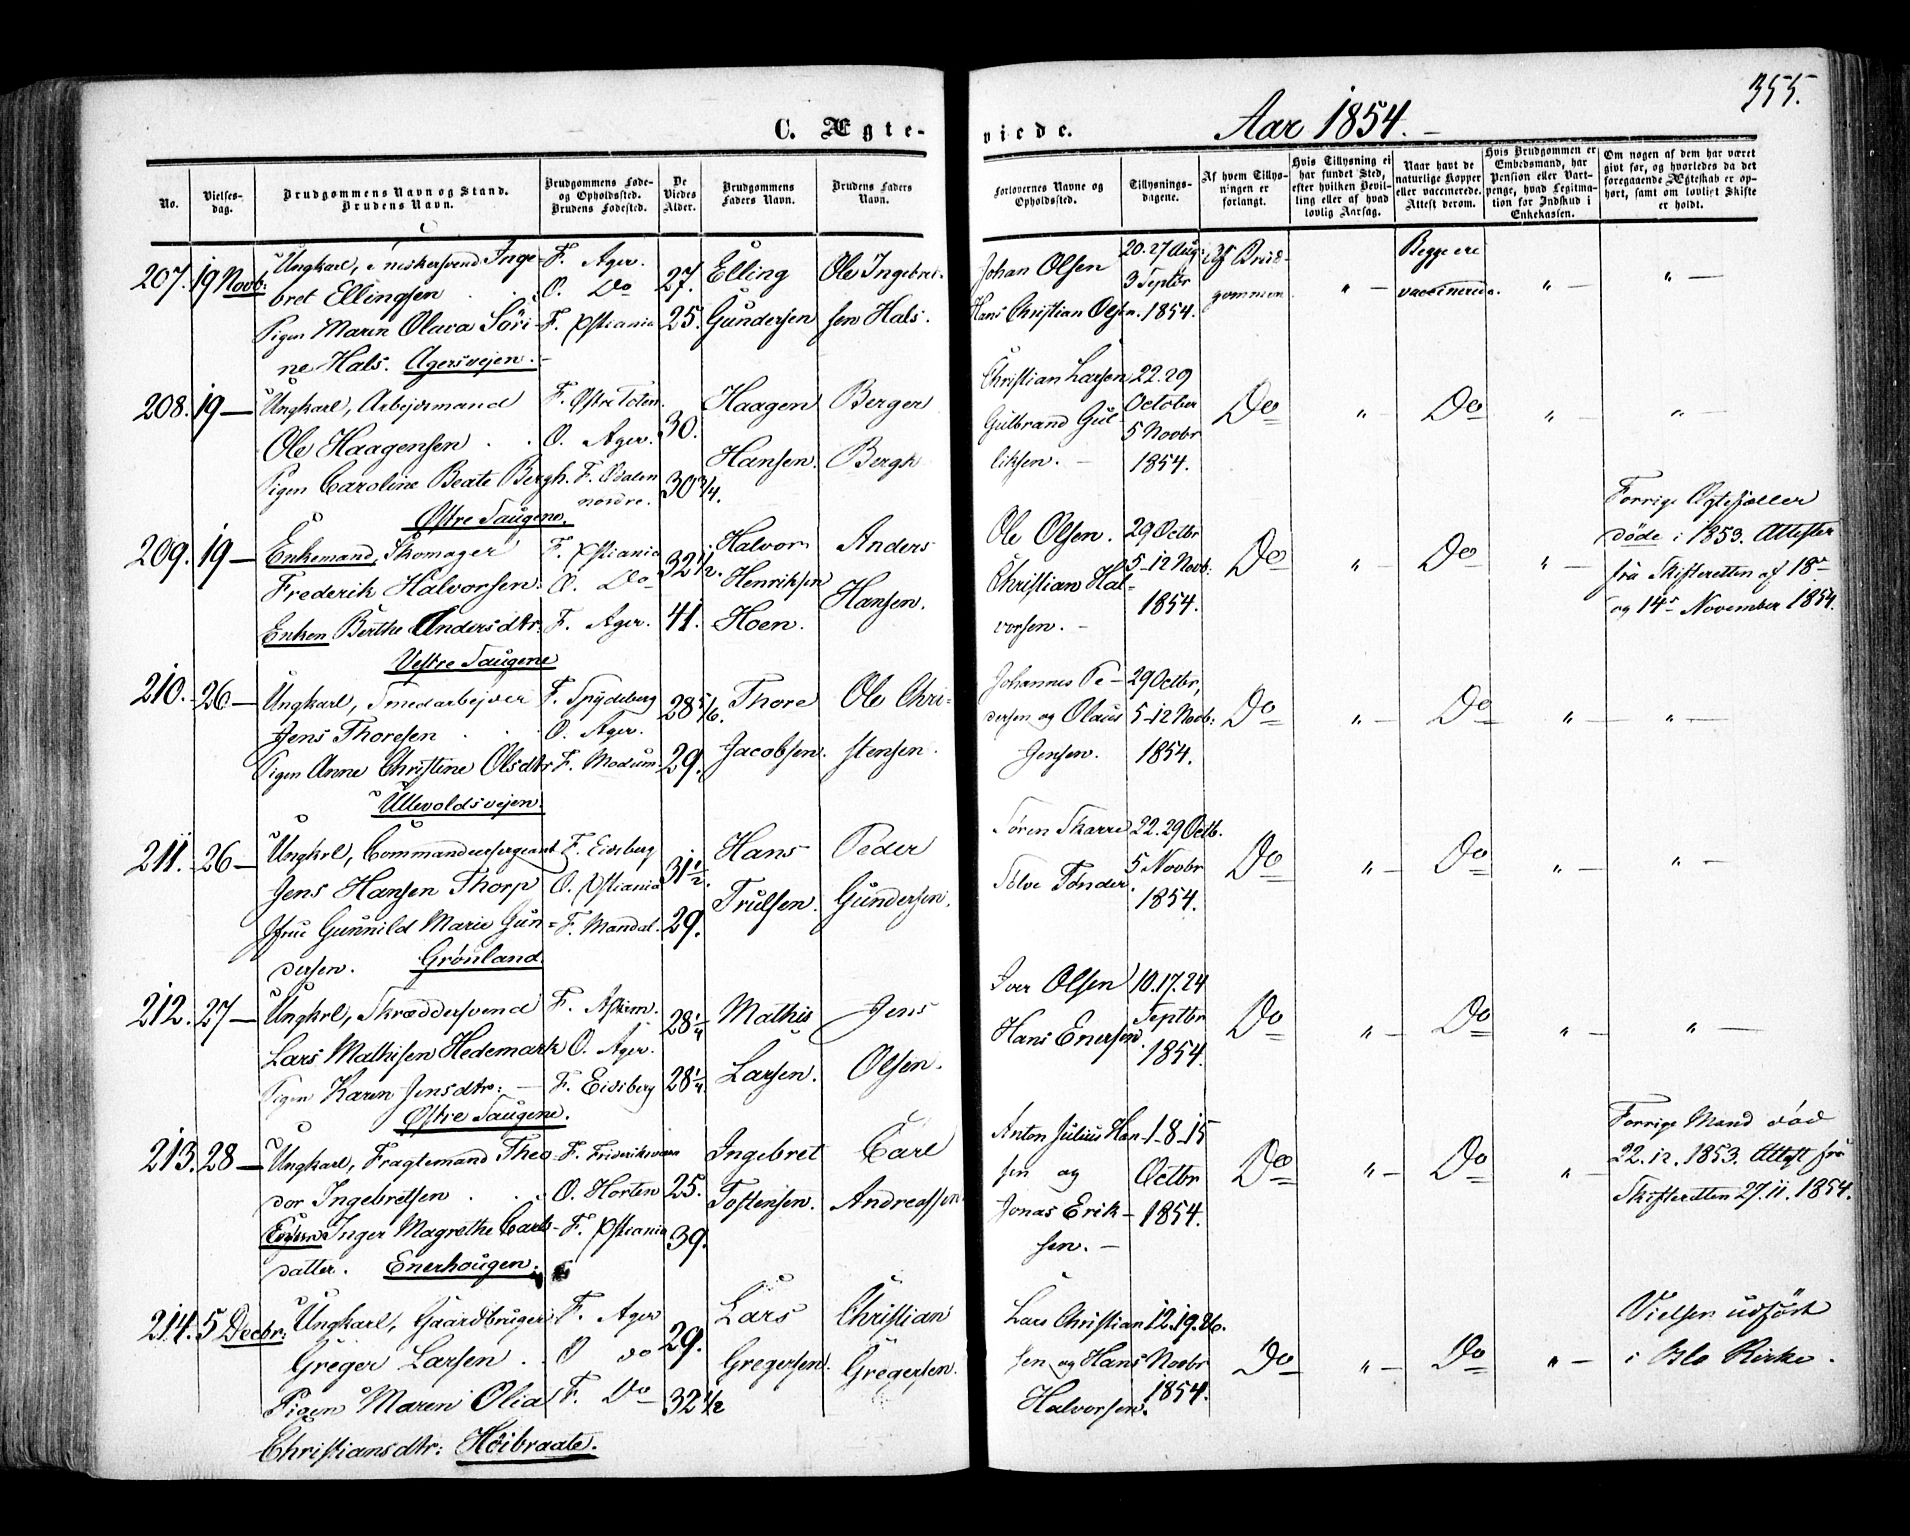 355.
C. Ægte-
viede.
Aar 1854.
No.
Vielses-
dag.
Brudgommens Navn og Stand.
Brudens Navn.
Brudgommens Føde-
og Opholdssted.
Brudens Fødested.
De
Viedes
Alder.
Brudgommens
Faders Navn.
Brudens Faders
Navn.
Forlovernes Navne og
Opholdssted.
Tillysnings-
dagene.
Af hvem Tillys-
ningen er
forlangt.
Hvis Tillysning ei
har fundet Sted,
efter hvilken Bevil-
ling eller af hvad
lovlig Aarsag.
Naar havt de
naturlige Kopper
eller vaccinerede.
Attest derom.
Hvis Brudgommen er
Embedsmand, har
Pension eller Vart-
penge, hvad Legitima-
tion for Indskud i
Enkekassen.
Om nogen af dem har været
givt før, og hvorledes da det
foregaaende Ægteskab er op-
hørt, samt om lovligt Skifte
er holdt.
207. 19 Novb: Ungkarl, Snekersvend Inge- F. Ager. 27. Elling Ole Ingebret- Johan Olsen 20. 27 Aug: Af Brud- " — Begge ere " — " —
bret Ellingsen O. Do 3 Septbr gommen vaccinerede.
Pigen Maren Olava Søri- F. Xstiania 25. Gundersen sen Hals. Hans Christian Olsen. 1854.
ne Hals. Agersvejen. —
208. 19 — Ungkarl, Arbejdsmand F. Østre Toten. 30. Haagen Berger Christian Larsen 22. 29 Do " — Do " — " —
Ole Haagensen O. Ager. Gulbrand Gul- October
Pigen Caroline Beate Bergh. F. Odalen 30 3/4. Hansen. Bergh liksen. — 5 Novbr
nordre. 1854.
Østre Taugene.
209. 19 — Enkemand, Skomager F. Xstiania 32 1/2. Halvor Anders Ole Olsen. 29 Octbr Do " — Do " — Forrige Ægtefæller
Frederik Halvorsen. O. Do Henriksen Hansen. Christian Hal- 5-12 Novb: døde i 1853. Attester
Enken Berthe Andersdtr. F. Ager. 41. Hoen. vorsen. — 1854. fra Skifteretten af 18de
og 14de November 1854.
Vestre Taugene
210. 26 — Ungkarl, Smedarbejder F. Spydeberg 28 5/6. Thore Ole Chri- Johannes Pe- 29 Octbr, Do " — Do " — " —
Jens Thoresen O. Ager. dersen og Olaus 5-12 Novb:
Pigen Anne Christine Olsdtr F. Modum. 29. Jacobsen. stensen. Jensen. 1854.
Ullevoldsvejen.
211. 26 — Ungkrl, Commandeersergeant F. Eidsberg 31 1/2. Hans Peder Søren Skarre 22. 29 Octb. Do " — Do " — " —
Jens Hansen Thorp O. Xstiania Tølve Tønder. 5 Novbr
Jfru Gunnild Marie Gun- F. Mandal. 29. Trulsen. Gundersen. 1854.
dersen. Grønland.
212. 27 — Ungkrl, Skræddersvend F. Askim. 28 1/4 Mathis Jens Iver Olsen 10. 17. 24 Do " — Do " — " —
Lars Mathisen Hedemark O. Ager. Hans Enersen. Septbr
Pigen Karen Jensdtr: — F. Eidsberg 28 1/4. Larsen. Olsen. 1854.
Østre Taugene.
213. 28 — Ungkarl, Fragtemand Theo- F. Frideriksværn 25. Ingebret Carl Anton Julius Han- 1-8-15 Do " — Do " — Forrige Mand død
dor Ingebretsen O. Horten sen og Octbr 22. 12. 1853. Attest fra
Enken Inger Magrethe Carls- F. Xstiania 39. Tostensen. Andreassen Jonas Erik- 1854. Skifteretten 27. 11. 1854.
datter. Enerhougen. sen. —
214. 5 Decbr: Ungkarl, Gaardbruger F. Ager 29. Lars Christian Lars Christian 12. 19. 26. Do " — Do " — Vielsen udført
Greger Larsen O do Gregersen. Gregersen. sen og Hans Novbr i Oslo Kirke.
Pigen Maren Olia F. Do 32 1/2 Halvorsen. 1854.
Christiansdtr: Høibraate.